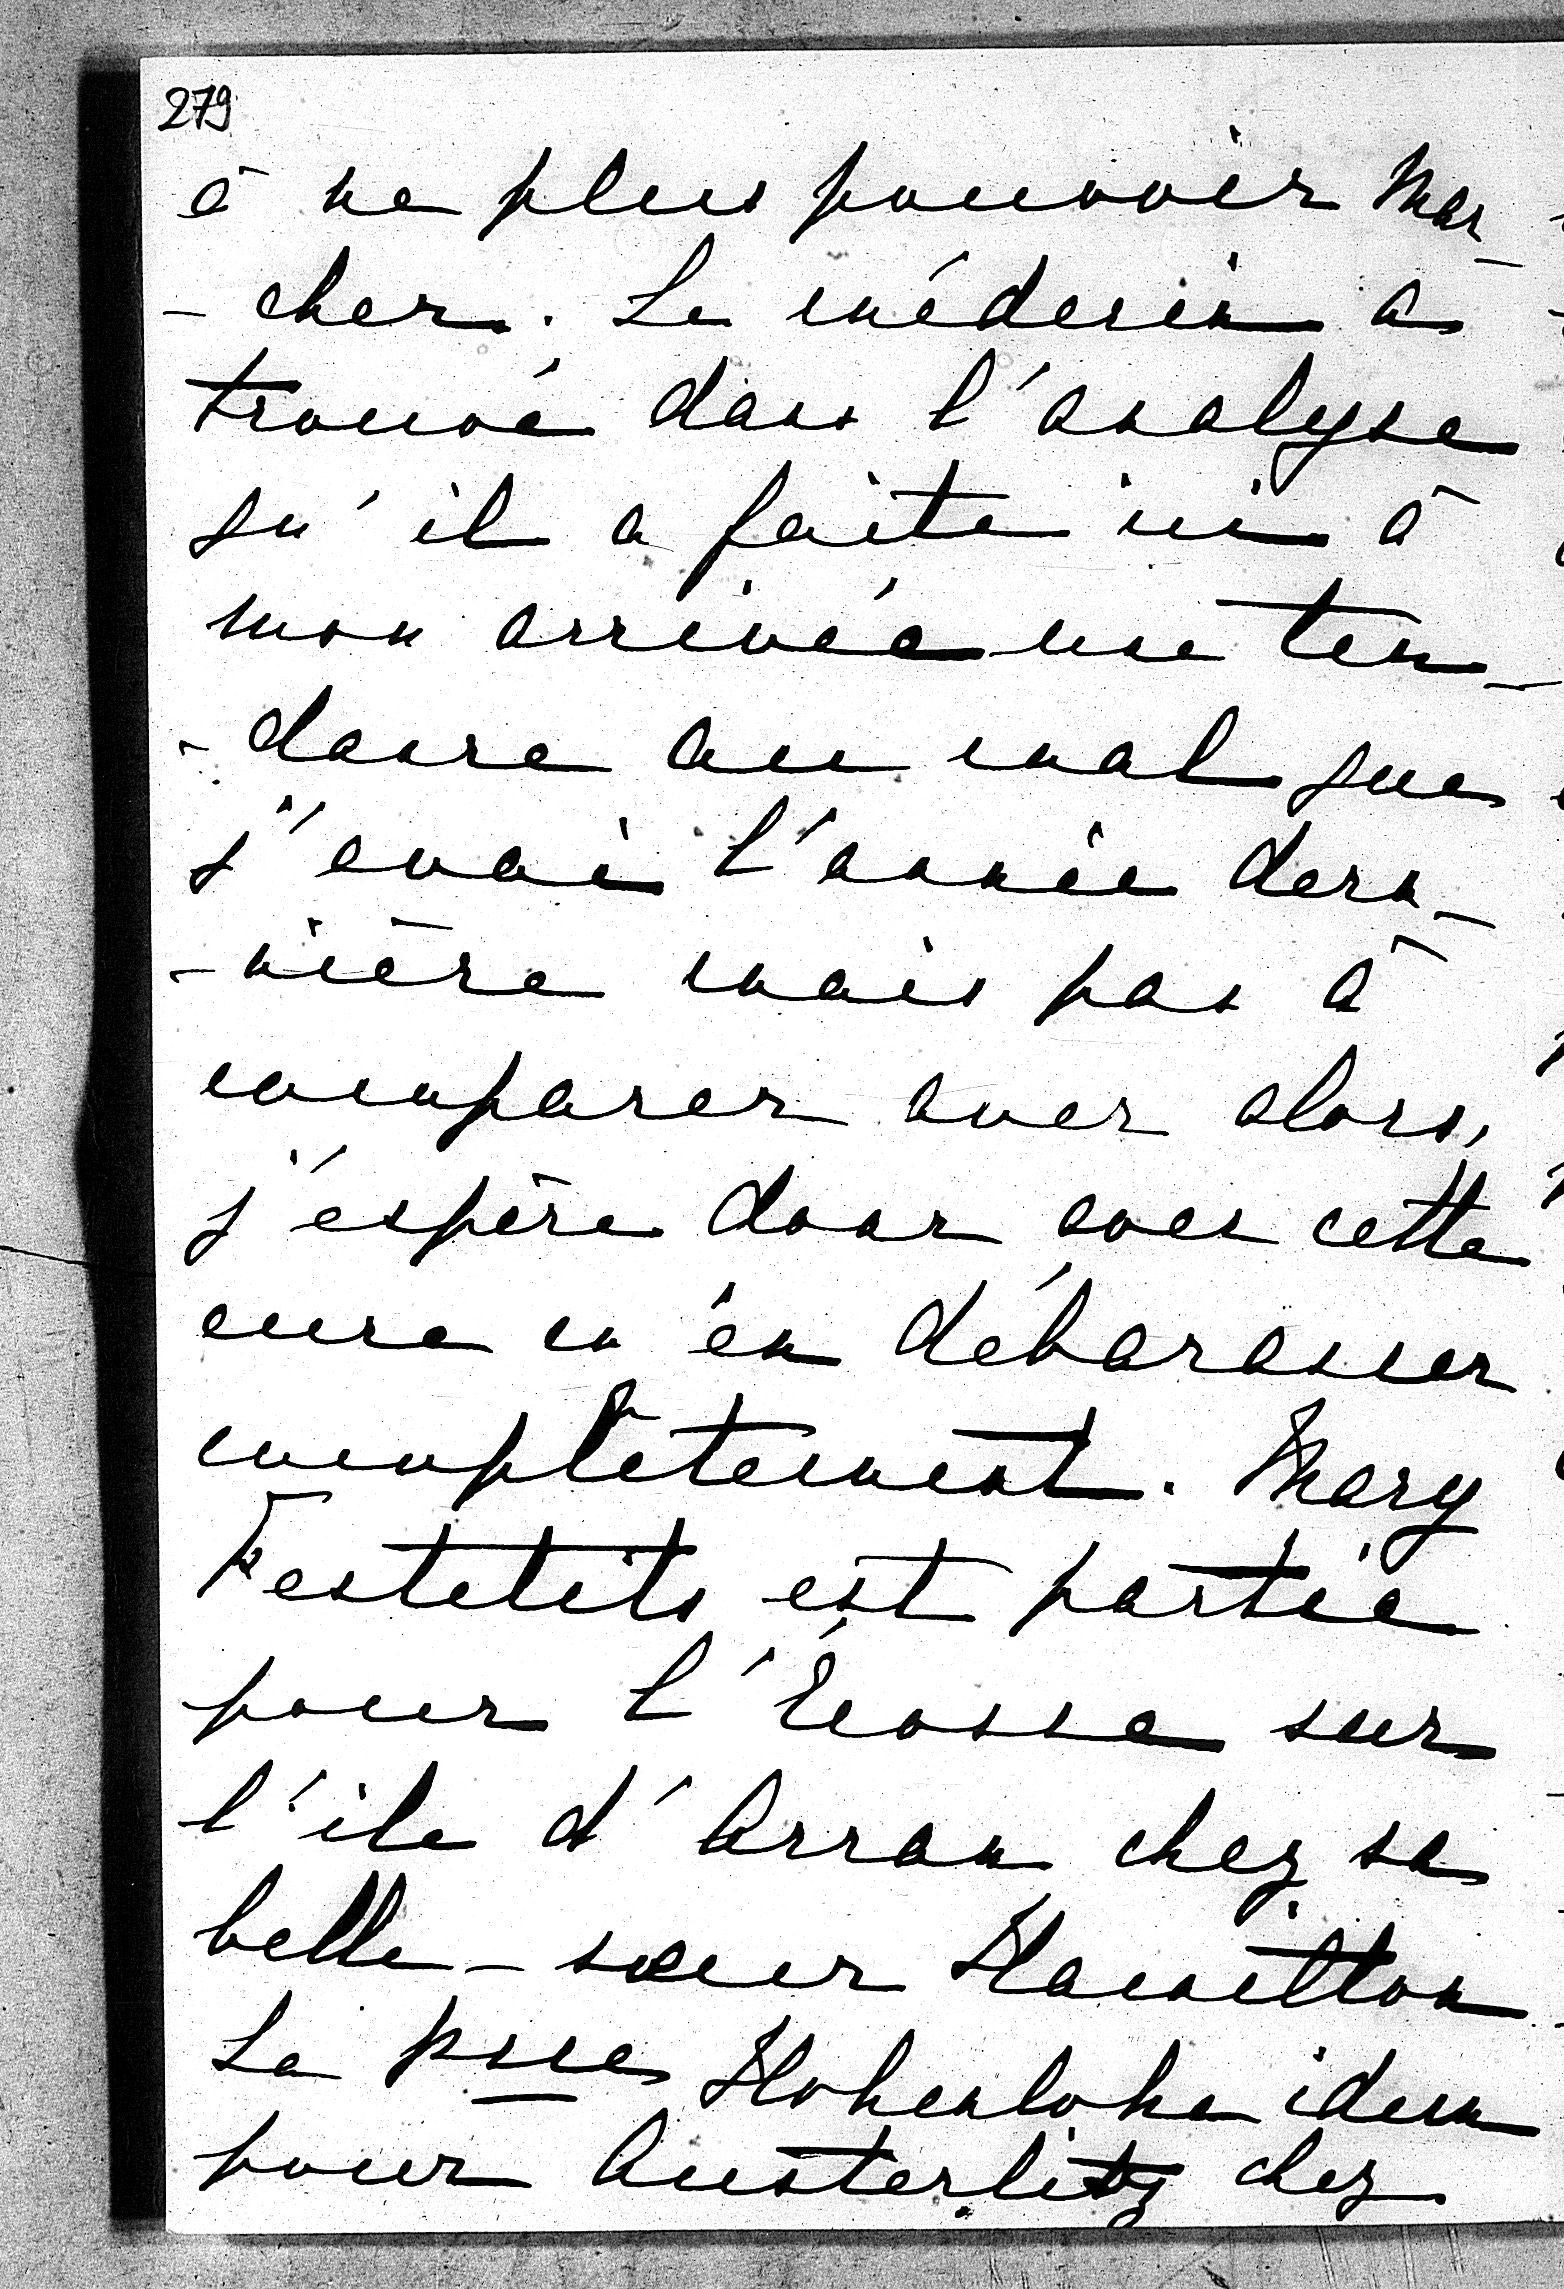 279
à ne plus pouvoir mar-
-cher. Le médecin a
trouvé dans l'analyse
qu'il a faite ici à
mon arrivée une ten-
-dance au mal que
j'avai l'année dern-
-nière mais pas à
comparer avec alors,
j'espère donc avec cette
cure m'en débarasser
complètement. Mary
Festetits est partie
pour l'Écosse sur
l'ile d'Arran chez sa
belle-sœur Hamilton
La psse Hohenlohe idem
pour Austerlitz chez